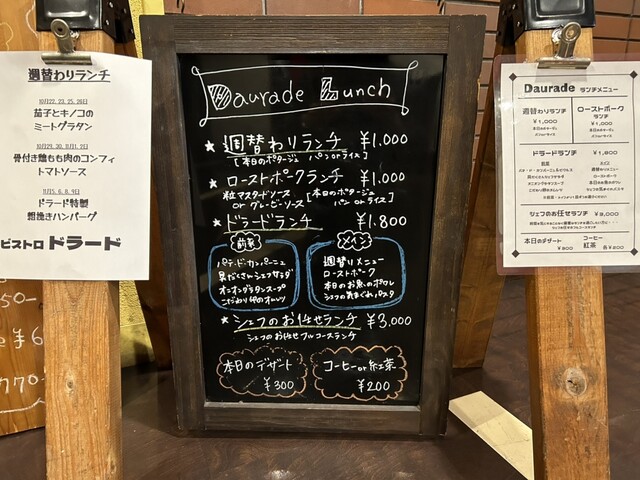 週替わりランチ
10月22、23、25、26日
茄子とキノコの
ミートグラタン
10月29、30、11月1、2日
骨付き鶏もも肉のコンフィ
トマトソース
11月5、6、8、9日
ドラード特製
粗挽きハンバーグ
ビストロ ドラード
Daurade Lunch
★ 週替わりランチ ¥1,000
[本日のポタージュ パンorライス]
★ ローストポークランチ ¥1,000
粒マスタードソース
orグレービーソース
[本日のポタージュ
パンorライス]
★ ドラードランチ ¥1,800
前菜
パテ・ド・カンパーニュ
具だくさんシェフサラダ
オニオングラタンスープ
こだわり卵のオムレツ
メイン
週替りメニュー
ローストポーク
本日のお魚のポワレ
シェフの気まぐれパスタ
★ シェフのお任せランチ ¥3,000
シェフのお任せフルコースランチ
本日のデザート
¥300
コーヒーor紅茶
¥200
Daurade ランチメニュー
週替わりランチ
¥1,000
ローストポーク
ランチ
¥1,000
ドラードランチ ¥1,800
前菜
メイン
シェフのお任せランチ ¥3,000
本日のデザート
¥300
コーヒー
紅茶
各¥200